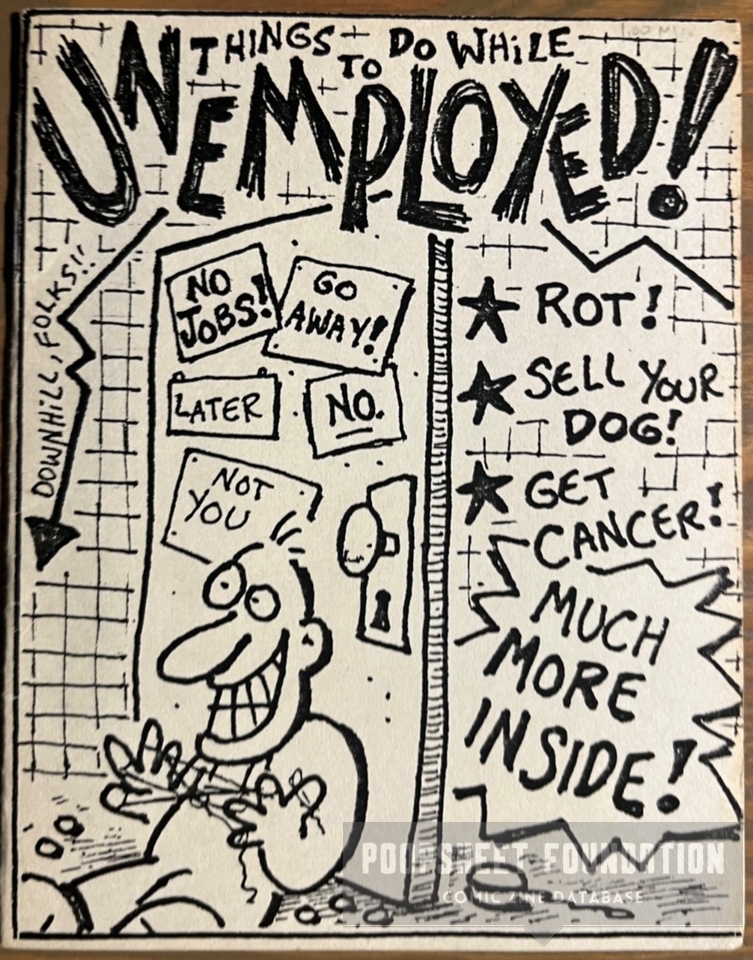 THINGS TO DO WHILE
UNEMPLOYED!
DOWNHILL, FOLKS!!
NO
JOBS!
GO
AWAY!
LATER
NO.
NOT
YOU
ROT!
SELL YOUR
DOG!
GET
CANCER!
MUCH
MORE
INSIDE!
POOPSHEET FOUNDATION
COMIC ZINE DATABASE